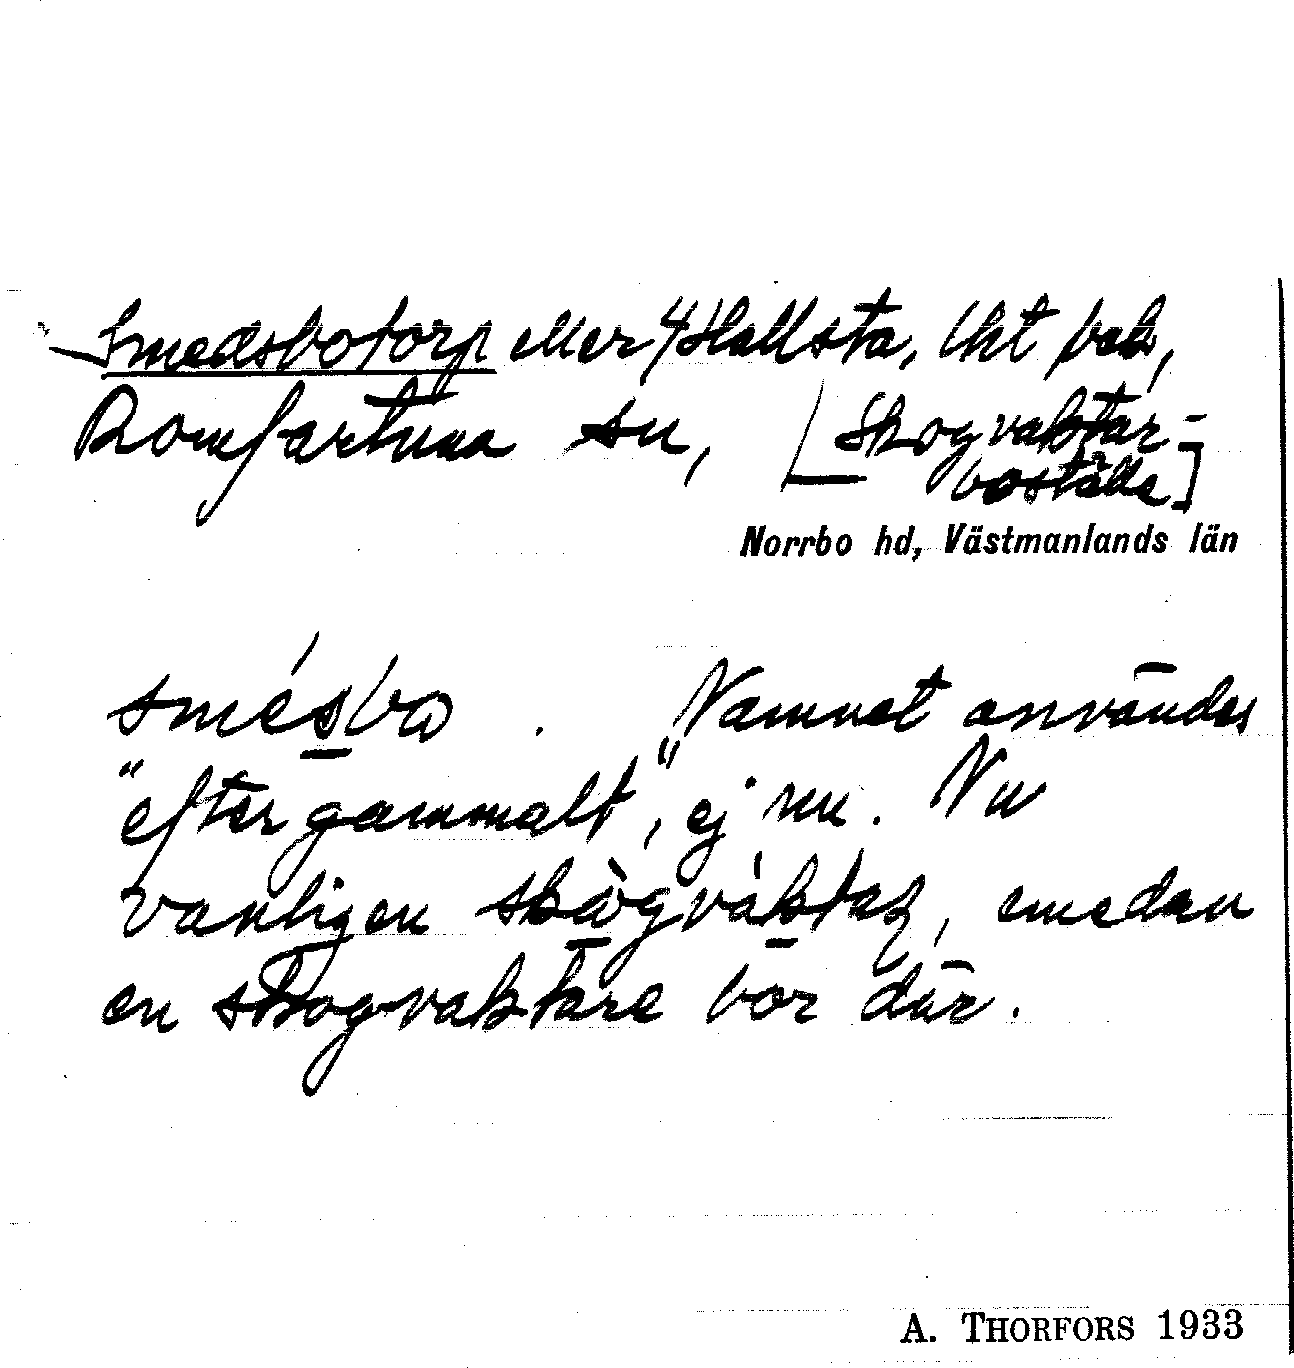 Smedsbotorp eller 4 Hallsta, lht beb,
Romfartuna sn, [Skogvaktar-
boställe]
Norrbo hd, Västmanlands län
smésbo . Namnet användes
"efter gammalt", ej nu. Nu
vanligen skògvàktar, emedan
en skogvaktare bor där.
A. THORFORS 1933